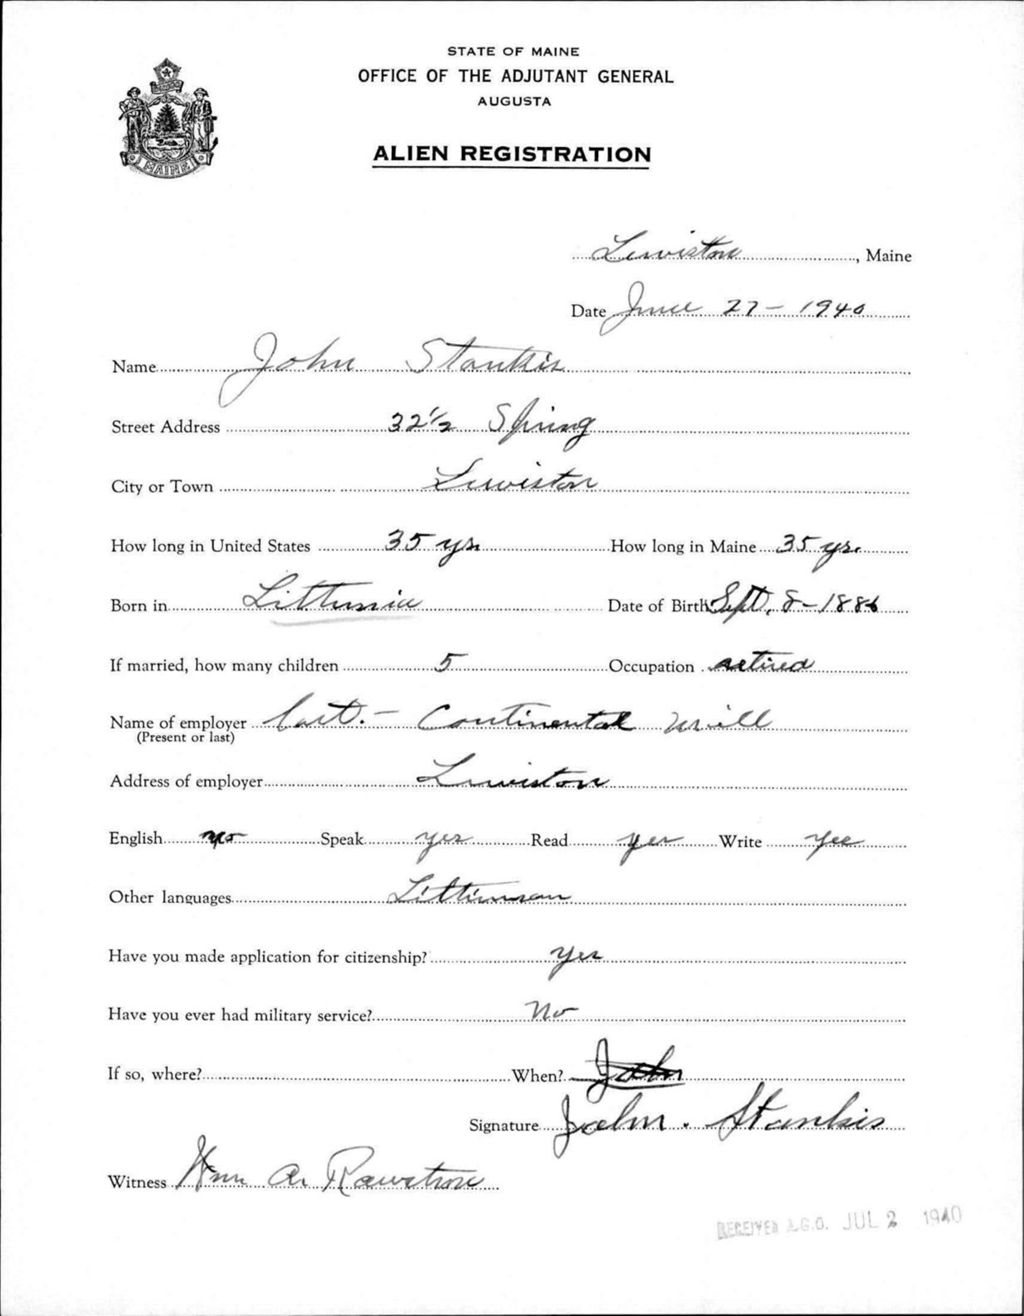 STATE OF MAINE
OFFICE OF THE ADJUTANT GENERAL
AUGUSTA
ALIEN REGISTRATION
MAINE
Lewiston, Maine
Date June 27 - 1940
Name John Stankis
Street Address 32 1/2 Spring
City or Town Lewiston
How long in United States 35 yrs. How long in Maine 35 yrs.
Born in Littunia Date of Birth Sept. 8 - 1886
If married, how many children 5 Occupation retired
Name of employer Last. - Continental Mill
(Present or last)
Address of employer Lewiston
English no Speak yes Read yes Write yes
Other languages
Have you made application for citizenship? Yes
Have you ever had military service? No
If so, where? When? John
Signature John. Stankis
Witness Wm A. Rawstron
RECEIVED A.G.O. JUL 2 1940